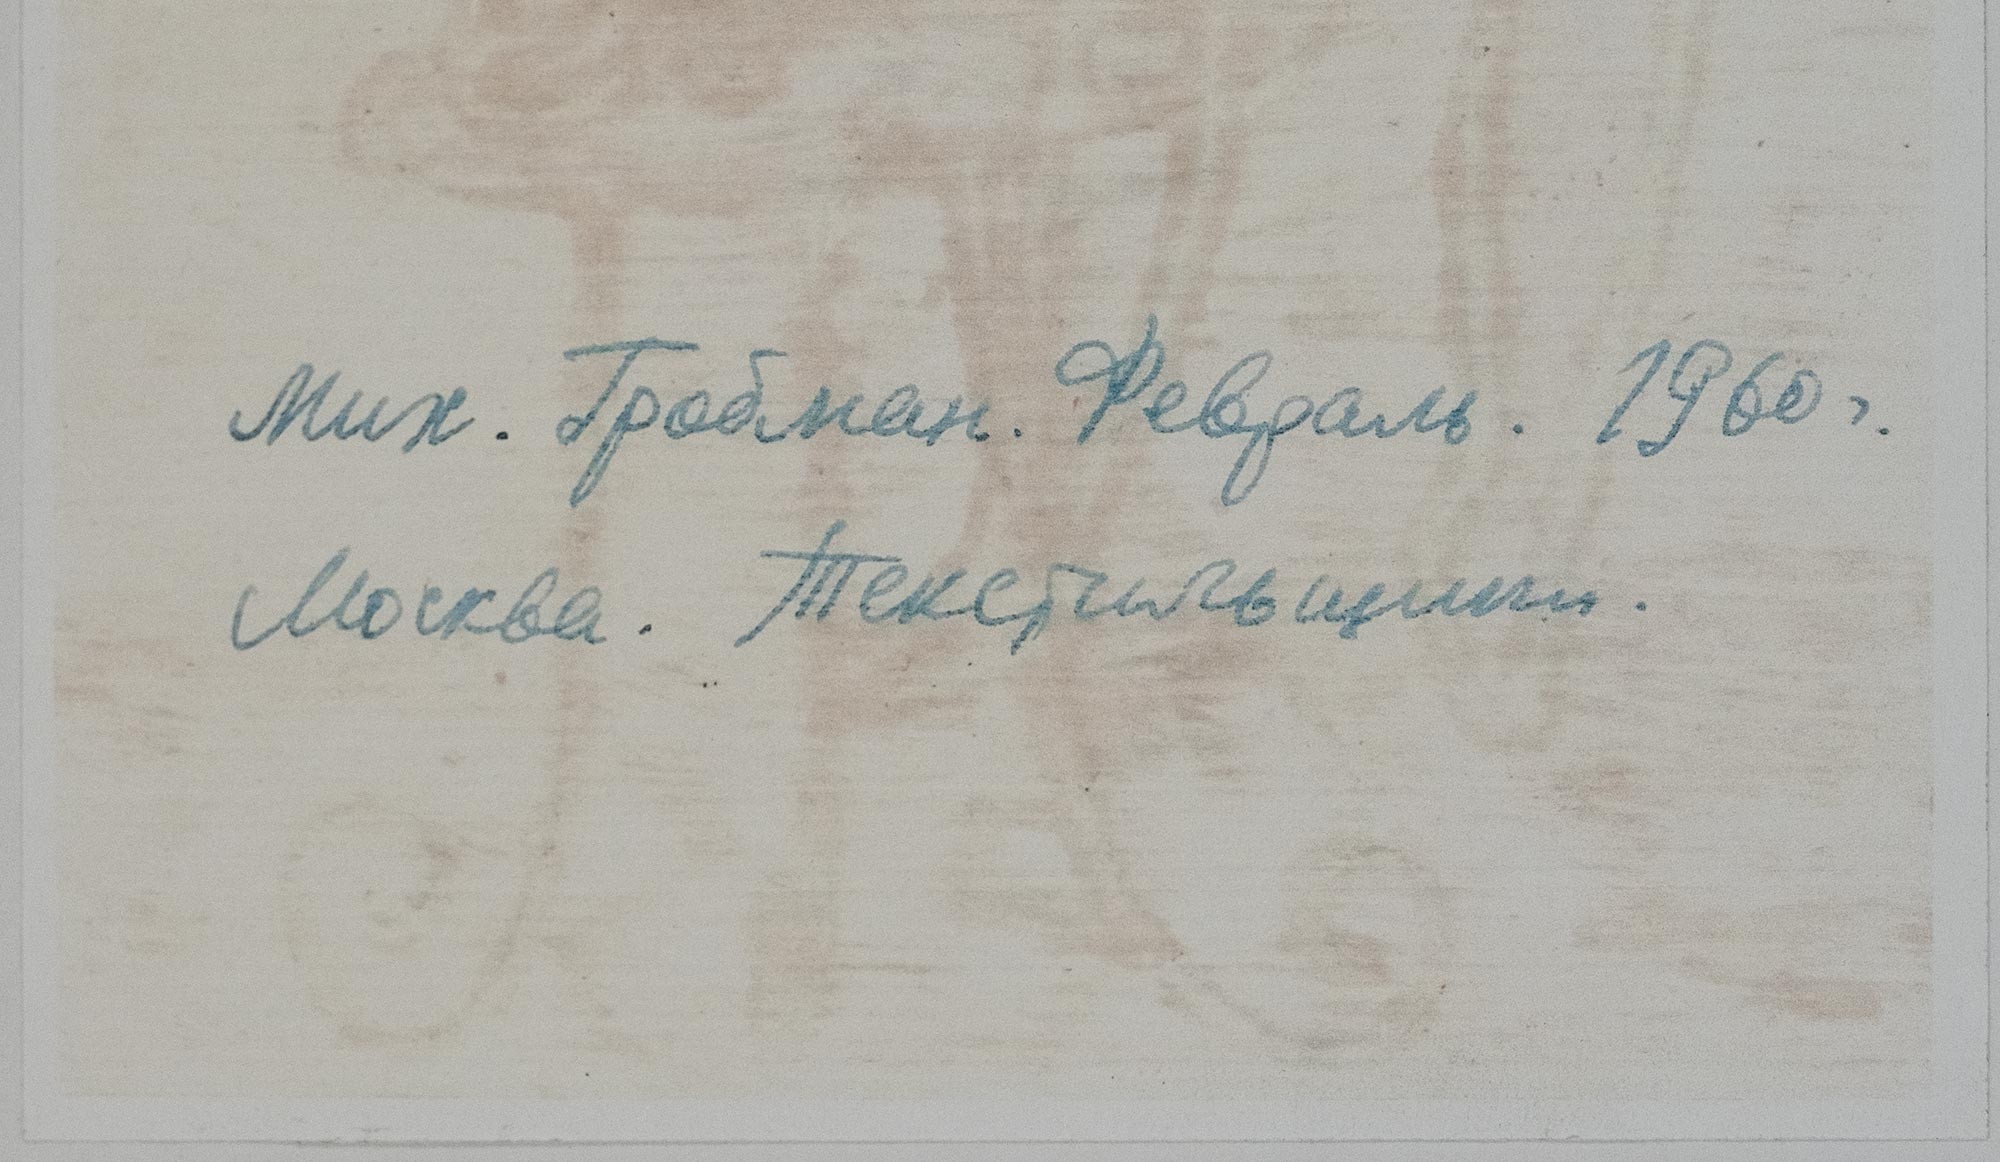 Мих. Гробман. Февраль. 1960 г.
Москва. Текстильщики.